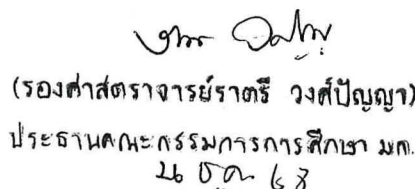 (รองศาสตราจารย์ราตรี วงศ์ปัญญา)
ประธานคณะกรรมการการศึกษา มก.
ธค. 63